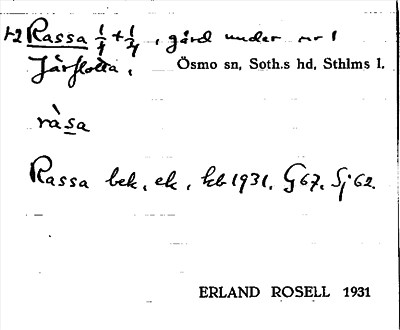 12 Rassa 1/4 + 1/4, gård under nr 1
Järflotta.
Ösmo sn, Soth.s hd, Sthlms l.
ràsa
Rassa bek. ek. kb 1931. G67. Sj 62.
ERLAND ROSELL 1931